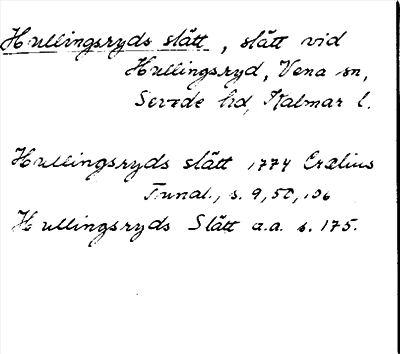 Hullingsryds slätt, slätt vid
Hullingsryd, Vena sn,
Sevede hd, Kalmar l.
Hullingsryds slätt 1774 Crælius
Tunal., s. 9, 50, 106
Hullingsryds Slätt a.a. s. 175.